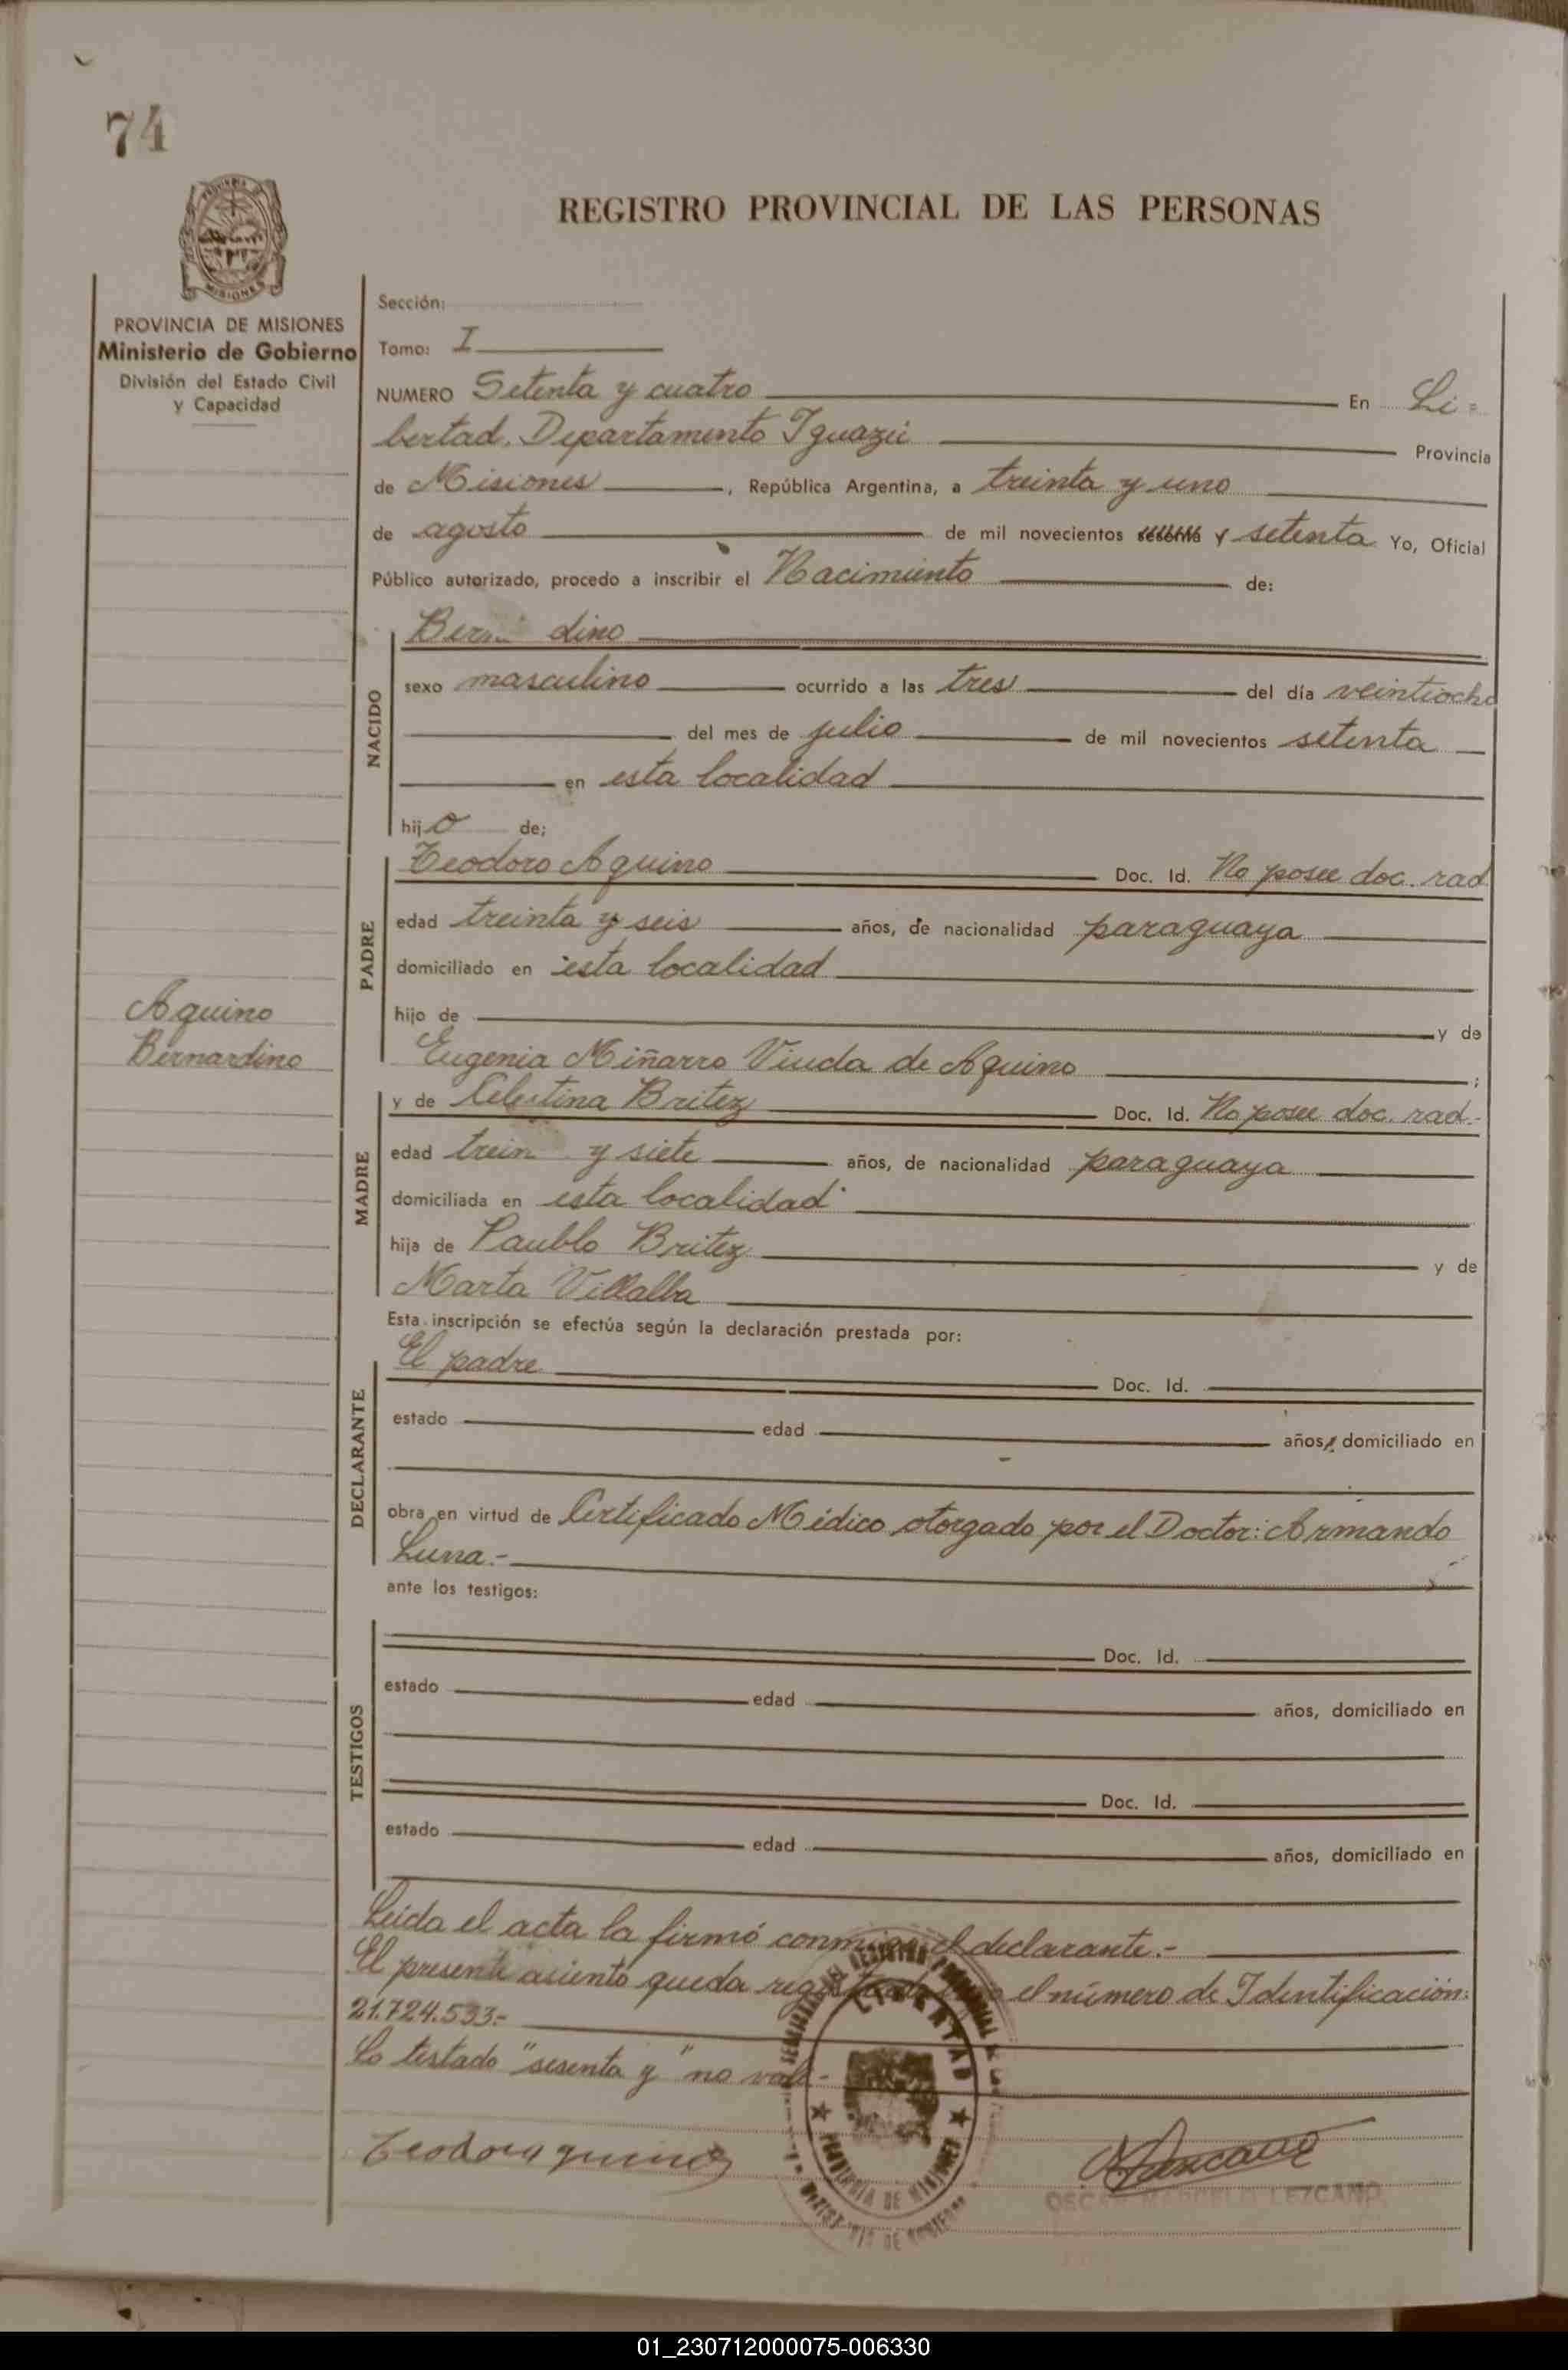 74
REGISTRO PROVINCIAL DE LAS PERSONAS
PROVINCIA DE MISIONES
Ministerio de Gobierno
División del Estado Civil
y Capacidad
Sección:
Tomo: I
NUMERO Setenta y cuatro En Li=
bertad, Departamento Iguazú Provincia
de Misiones, República Argentina, a treinta y uno
de agosto de mil novecientos sesenta y setenta Yo, Oficial
Público autorizado, procedo a inscribir el Nacimiento de:
NACIDO
Ber dino
sexo masculino ocurrido a las tres del día veintiocho
del mes de julio de mil novecientos setenta
en esta localidad
hijo de;
PADRE
Teodoro Aquino Doc. Id. No posee doc. rad
edad treinta y seis años, de nacionalidad paraguaya
domiciliado en esta localidad
hijo de y de
Eugenia Miñarro Viuda de Aquino;
Aquino
Bernardino
MADRE
y de Celestina Britez Doc. Id. No posee doc. rad.-
edad trein y siete años, de nacionalidad paraguaya
domiciliada en esta localidad
hija de Paublo Britez y de
Marta Villalba
Esta inscripción se efectúa según la declaración prestada por:
DECLARANTE
El padre Doc. Id.
estado edad años, domiciliado en
obra en virtud de Certificado Médico otorgado por el Doctor: Armando
Luna.-
ante los testigos:
TESTIGOS
Doc. Id.
estado edad años, domiciliado en
Doc. Id.
estado edad años, domiciliado en
Leída el acta la firmó conmigo el declarante.-
El presente asiento queda registrado el número de Identificación:
21.724.593.-
Lo testado "sesenta y" no vale.-
LIBERTAD
PROVINCIA DE MISIONES
Teodoro Aquino
OSCAR MARCELO LEZCANO
01_230712000075-006330